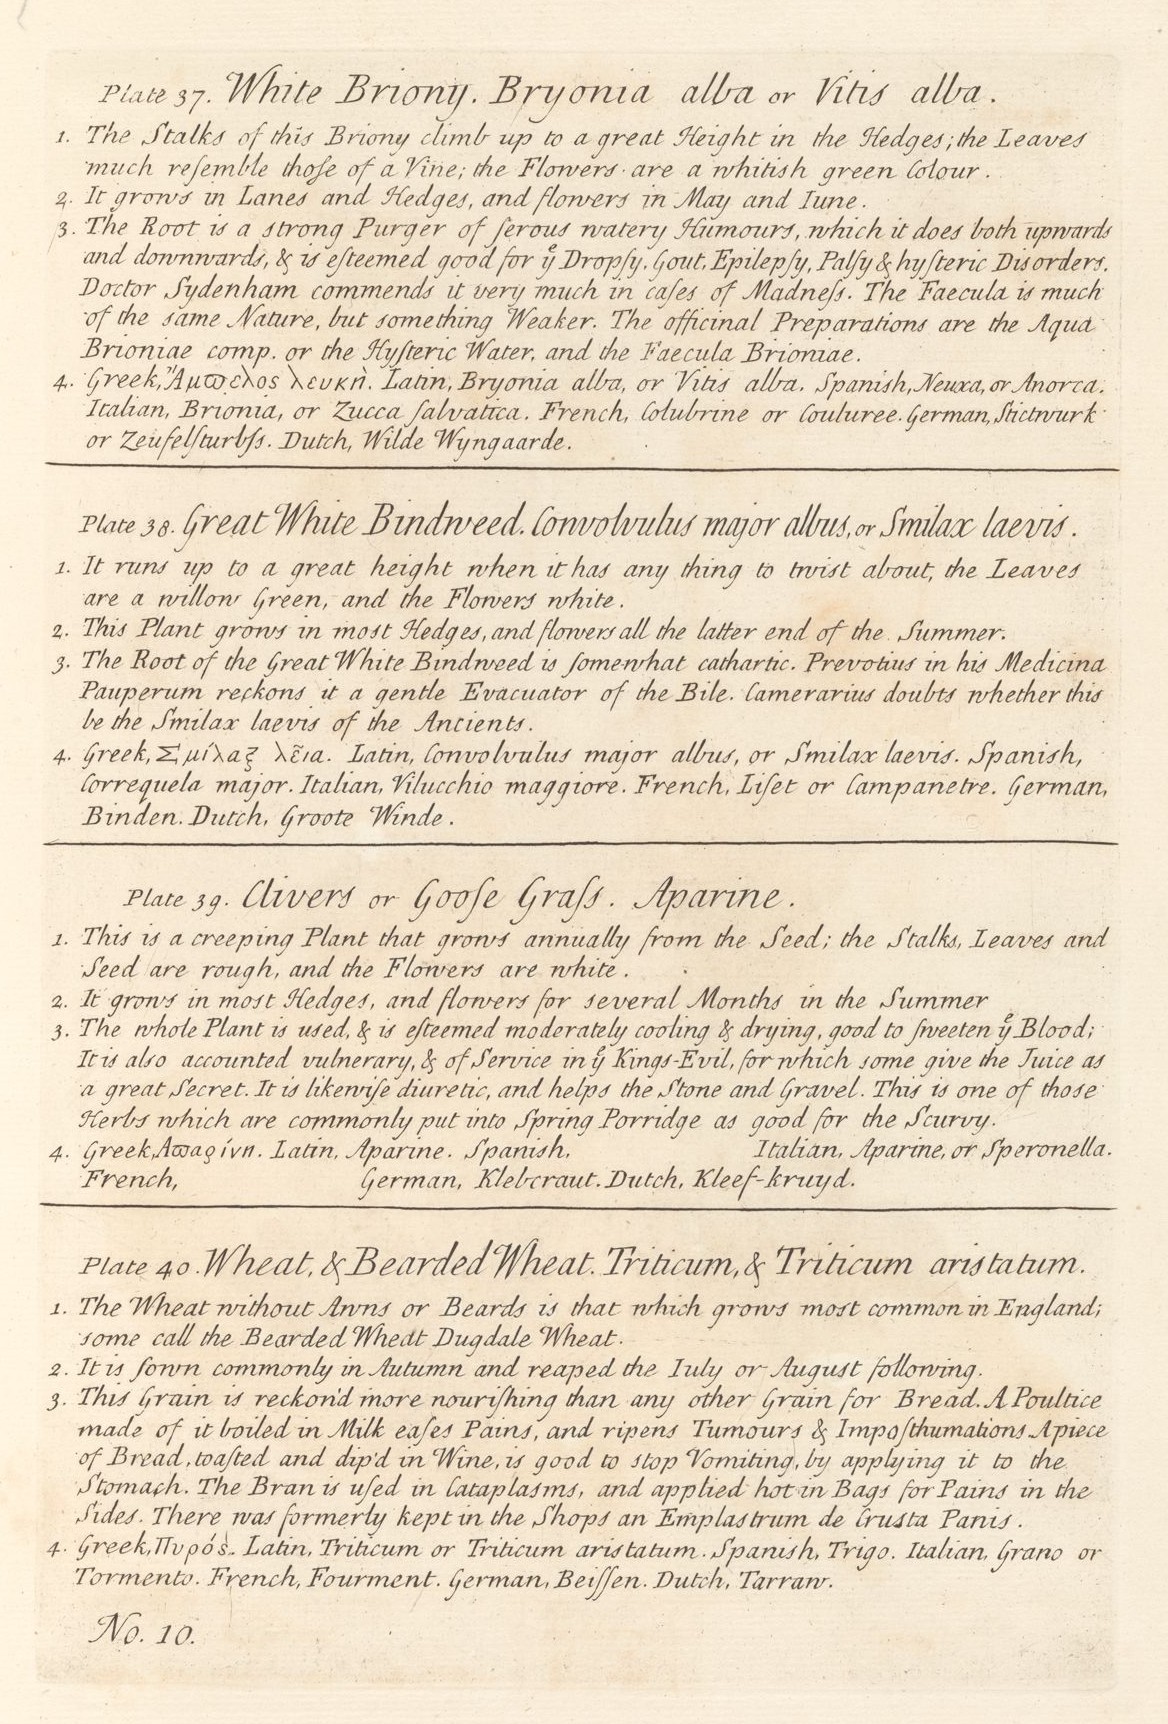 Plate 37. White Briony. Bryonia alba or Vitis alba.
1. The Stalks of this Briony climb up to a great Height in the Hedges; the Leaves
much reſemble thoſe of a Vine; the Flowers are a whitish green Colour.
2. It grows in Lanes and Hedges, and flowers in May and Iune.
3. The Root is a strong Purger of ſerous watery Humours, which it does both upwards
and downwards, & is eſteemed good for yͤ Dropſy, Gout, Epilepſy, Palſy & hyſteric Disorders.
Doctor Sydenham commends it very much in caſes of Madneſs. The Faecula is much
of the same Nature, but something Weaker. The officinal Preparations are the Aqua
Brioniae comp. or the Hyſteric Water, and the Faecula Brioniae.
4. Greek, Ἄμϖελος λευκὴ. Latin, Bryonia alba, or Vitis alba. Spanish, Neuxa, or Anorca.
Italian, Brionia, or Zucca ſalvatica. French, Colubrine or Couluree. German, Stictwurk
or Zeufelſturbſs. Dutch, Wilde Wyngaarde.
Plate 38. Great White Bindweed. Convolvulus major albus, or Smilax laevis.
1. It runs up to a great height when it has any thing to twist about, the Leaves
are a willow Green, and the Flowers white.
2. This Plant grows in most Hedges, and flowers all the latter end of the Summer.
3. The Root of the Great White Bindweed is ſomewhat cathartic. Prevotius in his Medicina
Pauperum reckons it a gentle Evacuator of the Bile. Camerarius doubts whether this
be the Smilax laevis of the Ancients.
4. Greek, Σμίλαξ λεῖα. Latin, Convolvulus major albus, or Smilax laevis. Spanish,
Correquela major. Italian, Vilucchio maggiore. French, Liſet or Campanetre. German,
Binden. Dutch, Groote Winde.
Plate 39. Clivers or Gooſe Graſs. Aparine.
1. This is a creeping Plant that grows annually from the Seed; the Stalks, Leaves and
Seed are rough, and the Flowers are white.
2. It grows in most Hedges, and flowers for several Months in the Summer
3. The whole Plant is used, & is eſteemed moderately cooling & drying, good to ſweeten yͤ Blood;
It is also accounted vulnerary, & of Service in yͤ Kings-Evil, for which some give the Juice as
a great Secret. It is likewiſe diuretic, and helps the Stone and Gravel. This is one of those
Herbs which are commonly put into Spring Porridge as good for the Scurvy.
4. Greek, Αϖαρίνη. Latin, Aparine. Spanish, Italian, Aparine, or Speronella.
French, German, Klebcraut. Dutch, Kleef-kruyd.
Plate 40. Wheat, & Bearded Wheat. Triticum, & Triticum aristatum.
1. The Wheat without Awns or Beards is that which grows most common in England;
some call the Bearded Wheat Dugdale Wheat.
2. It is ſown commonly in Autumn and reaped the Iuly or August following.
3. This Grain is reckon'd more nouriſhing than any other Grain for Bread. A Poultice
made of it boiled in Milk eaſes Pains, and ripens Tumours & Impoſthumations. A piece
of Bread, toaſted and dip'd in Wine, is good to stop Vomiting, by applying it to the
Stomach. The Bran is uſed in Cataplasms, and applied hot in Bags for Pains in the
Sides. There was formerly kept in the Shops an Emplastrum de Crusta Panis.
4. Greek, Πυρός. Latin, Triticum or Triticum aristatum. Spanish, Trigo. Italian, Grano or
Tormento. French, Fourment. German, Beiſſen. Dutch, Tarraw.
No. 10.